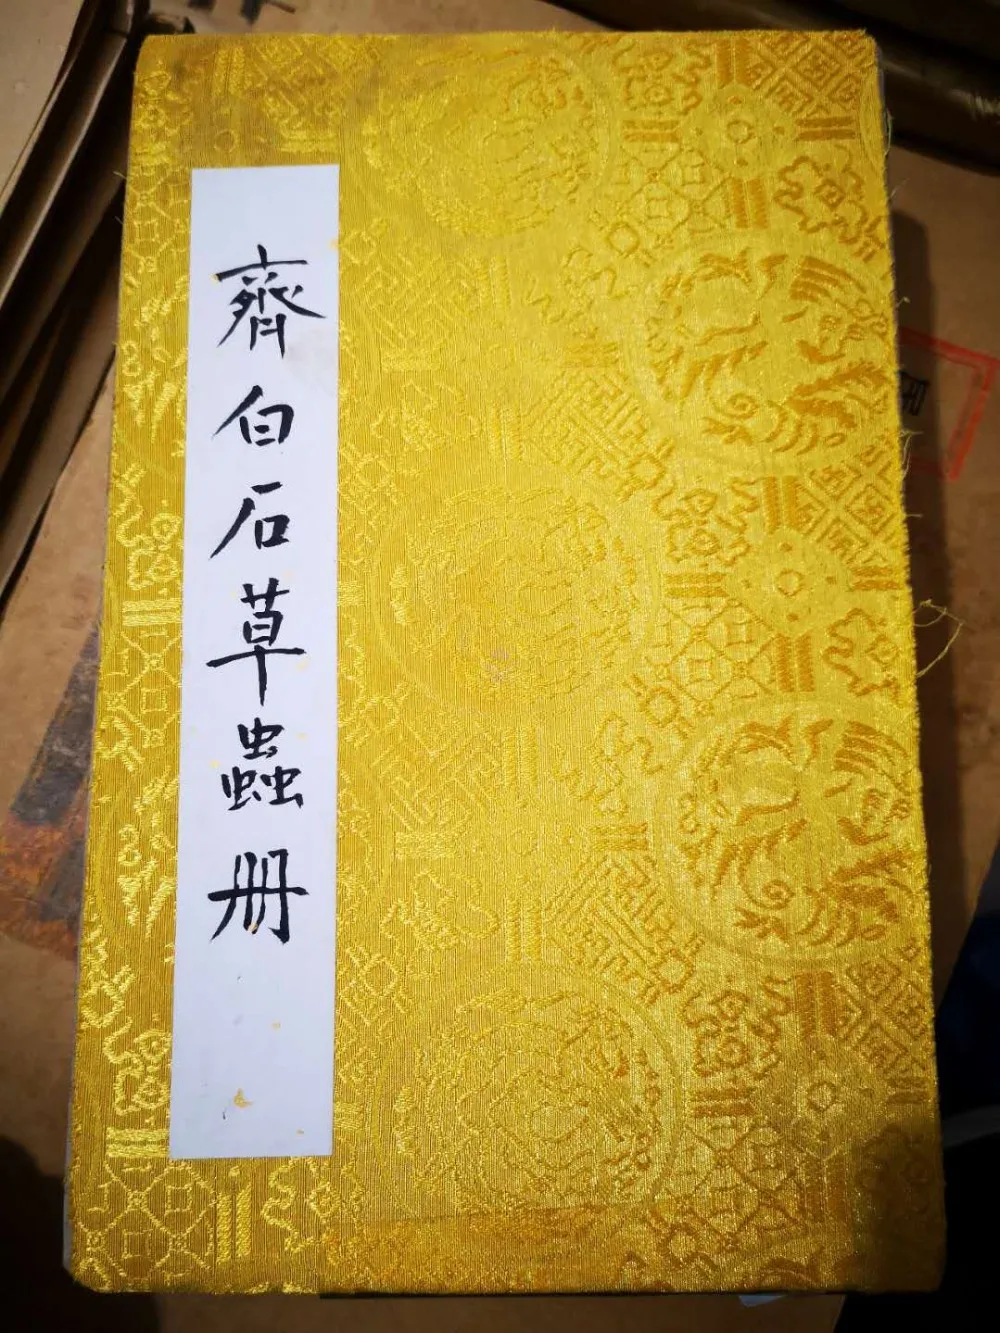 齊白石草蟲册